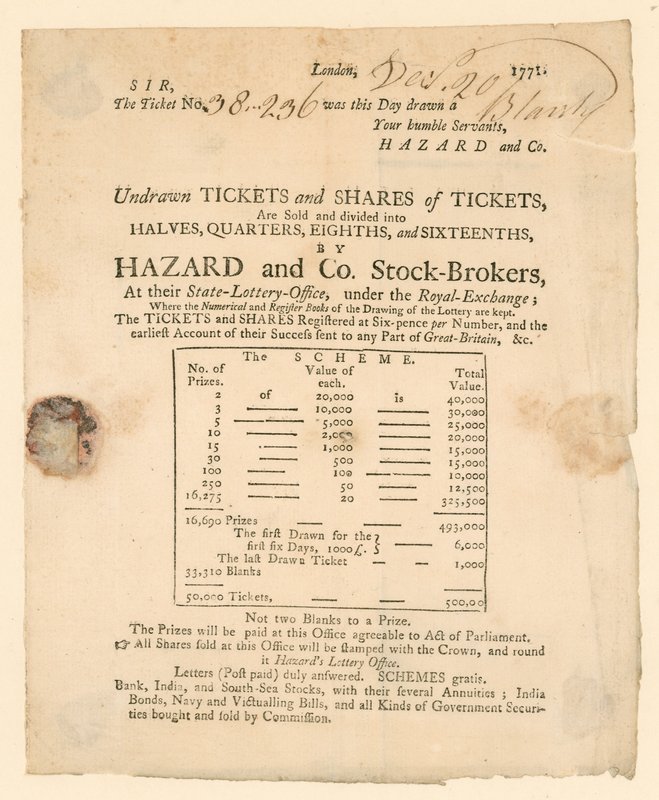 London, Dec.r 20 1771.
SIR,
The Ticket No. 38..236 was this Day drawn a Blank
Your humble Servants,
HAZARD and Co.
Undrawn TICKETS and SHARES of TICKETS,
Are Sold and divided into
HALVES, QUARTERS, EIGHTHS, and SIXTEENTHS,
BY
HAZARD and Co. Stock-Brokers,
At their State-Lottery-Office, under the Royal-Exchange;
Where the Numerical and Regiſter Books of the Drawing of the Lottery are kept.
The TICKETS and SHARES Regiſtered at Six-pence per Number, and the
earlieſt Account of their Succeſs ſent to any Part of Great-Britain, &c.
The SCHEME.
No. of Prizes. Value of each. Total Value.
2 of 20,000 is 40,000
3 —— 10,000 —— 30,000
5 —— 5,000 —— 25,000
10 —— 2,000 —— 20,000
15 —— 1,000 —— 15,000
30 —— 500 —— 15,000
100 —— 100 —— 10,000
250 —— 50 —— 12,500
16,275 —— 20 —— 325,500
16,690 Prizes — — 493,000
The firſt Drawn for the
firſt ſix Days, 1000£. } — 6,000
The laſt Drawn Ticket — — 1,000
33,310 Blanks
50,000 Tickets, — — 500,00
Not two Blanks to a Prize.
The Prizes will be paid at this Office agreeable to Act of Parliament.
☞ All Shares ſold at this Office will be ſtamped with the Crown, and round
it Hazard's Lottery Office.
Letters (Poſt paid) duly anſwered. SCHEMES gratis.
Bank, India, and South-Sea Stocks, with their ſeveral Annuities; India
Bonds, Navy and Victualling Bills, and all Kinds of Government Securi-
ties bought and ſold by Commiſſion.